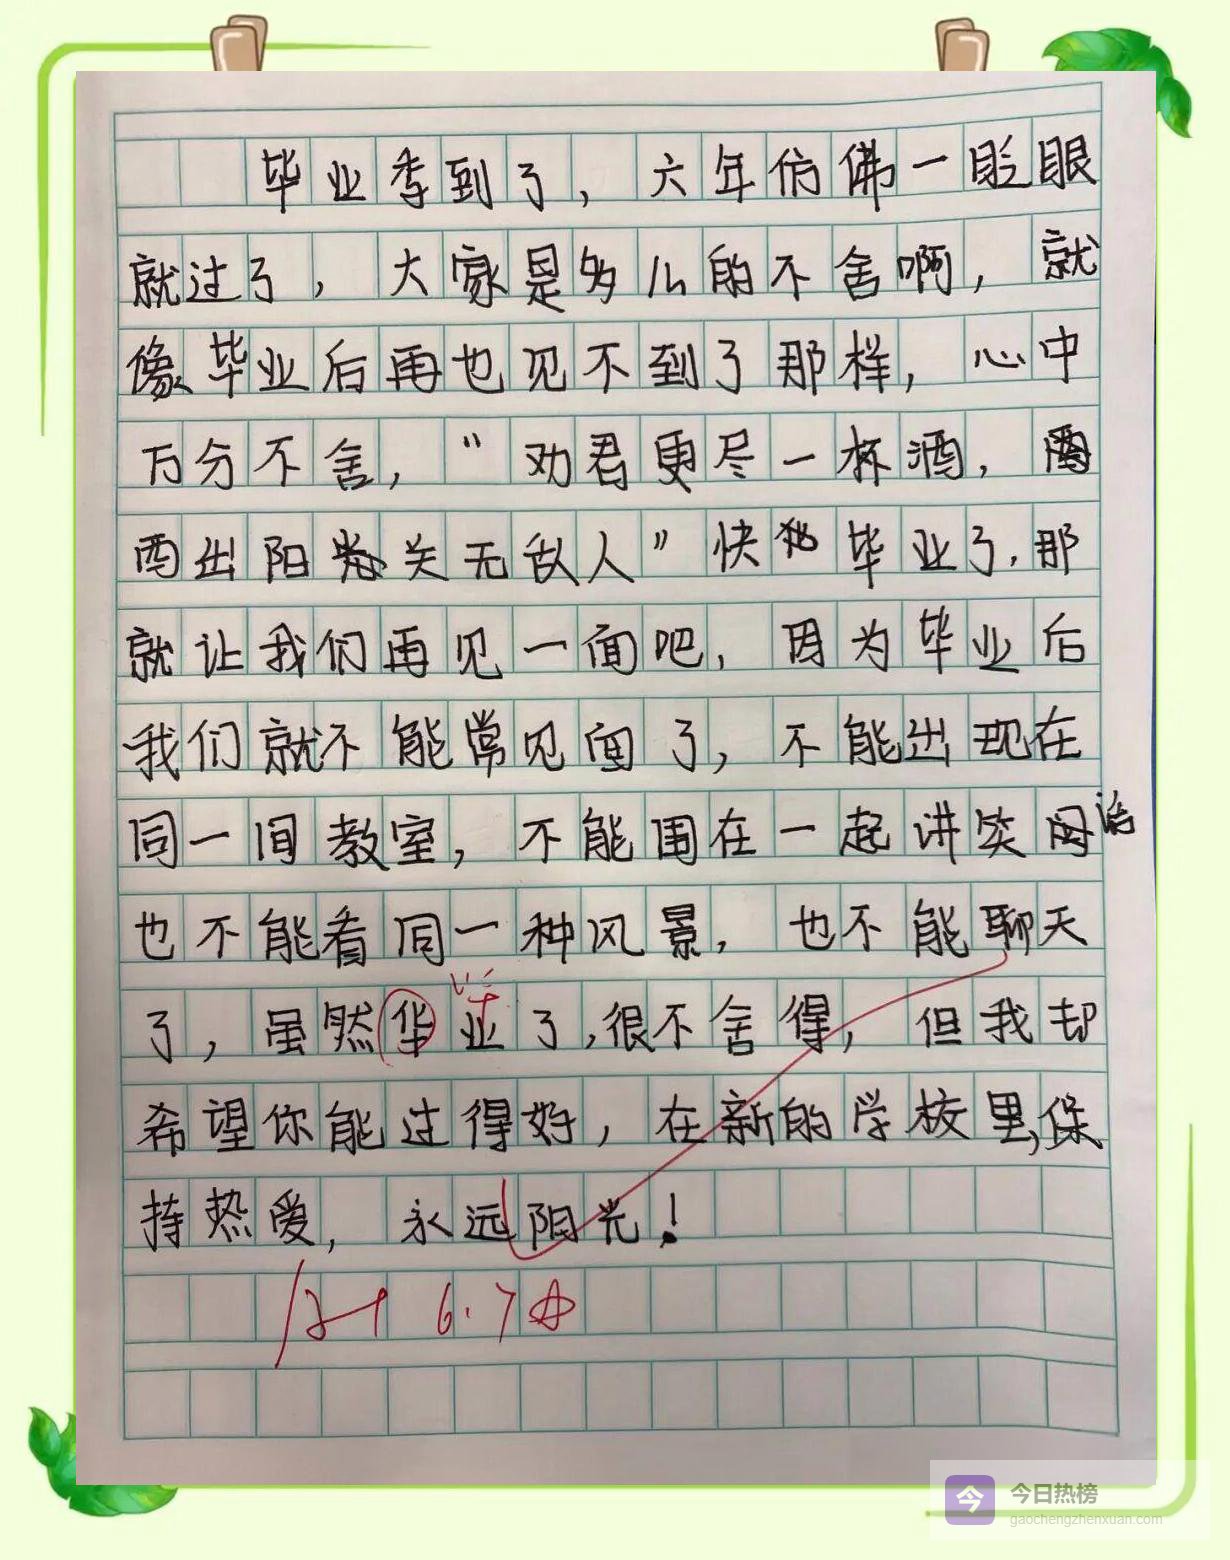 毕业季到了，六年仿佛一眨眼
就过了，大家是多么的不舍啊，就
像毕业后再也见不到了那样，心中
万分不舍，“劝君更尽一杯酒，
西出阳关无敌人”快毕业了，那
就让我们再见一面吧，因为毕业后
我们就不能常见面了，不能出现在
同一间教室，不能围在一起讲笑话
也不能看同一种风景，也不能聊天
了，虽然华业了，很不舍得，但我却
毕
希望你能过得好，在新的学校里，保
持热爱，永远阳光！
6.7
今 今日热榜
gaochengzhenxuan.com